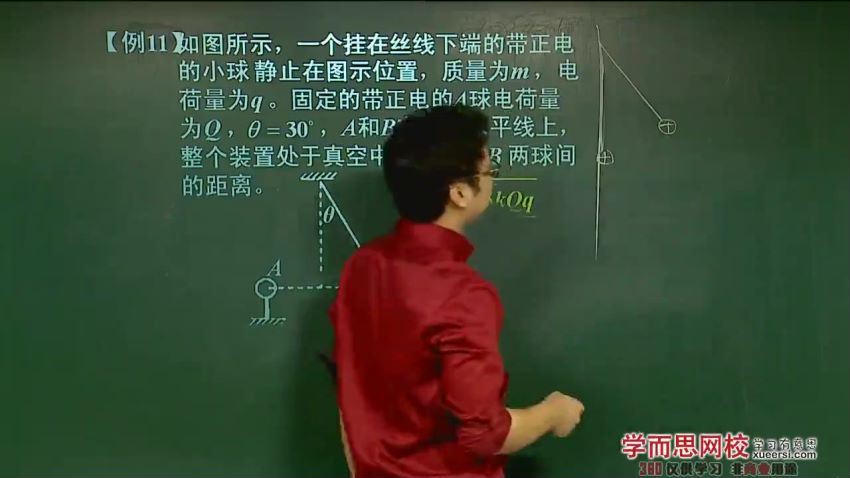 【例11】如图所示，一个挂在丝线下端的带正电
的小球静止在图示位置，质量为m，电
荷量为q。固定的带正电的A球电荷量
为Q，θ=30°，A和B 平线上，
整个装置处于真空中 B两球间
的距离。
kQq
θ
A
学而思网校 学习有意思
xueersi.com
360 仅供学习 非商业用途